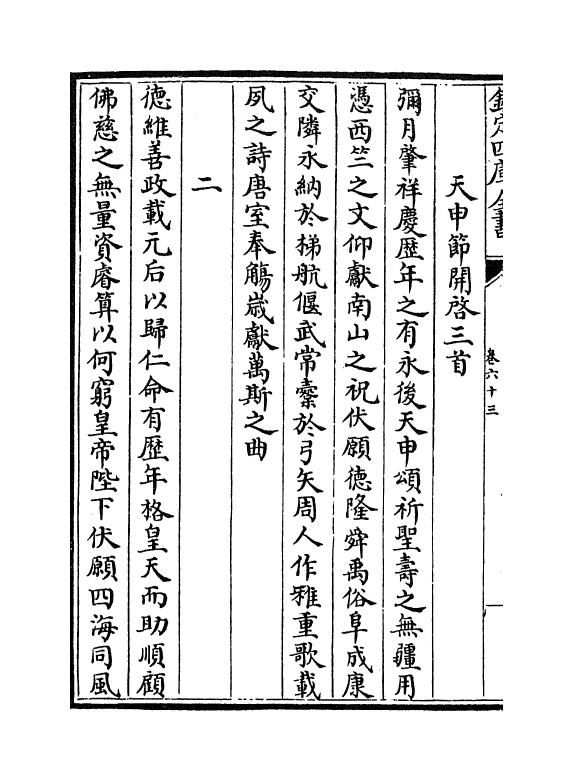 欽定四庫全書
卷六十三
天申節開啓三首
彌月肇祥慶歷年之有永後天申頌祈聖壽之無疆用
憑西竺之文仰獻南山之祝伏願德隆舜禹俗阜成康
交隣永納於梯航偃武常櫜於弓矢周人作雅重歌載
夙之詩唐室奉觴歳獻萬斯之曲
二
德維善政載元后以歸仁命有歴年格皇天而助順顧
佛慈之無量資睿算以何窮皇帝陛下伏願四海同風